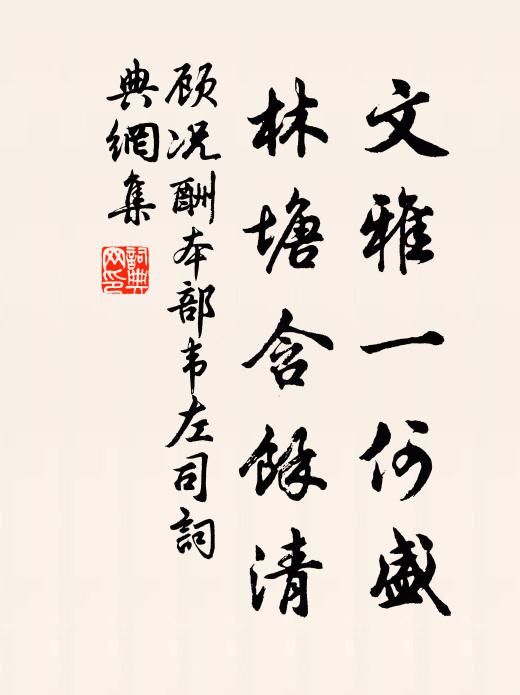 文雅一何盛
林塘含餘清
顾况酬本部韦左司詞
典網集
詞典網印